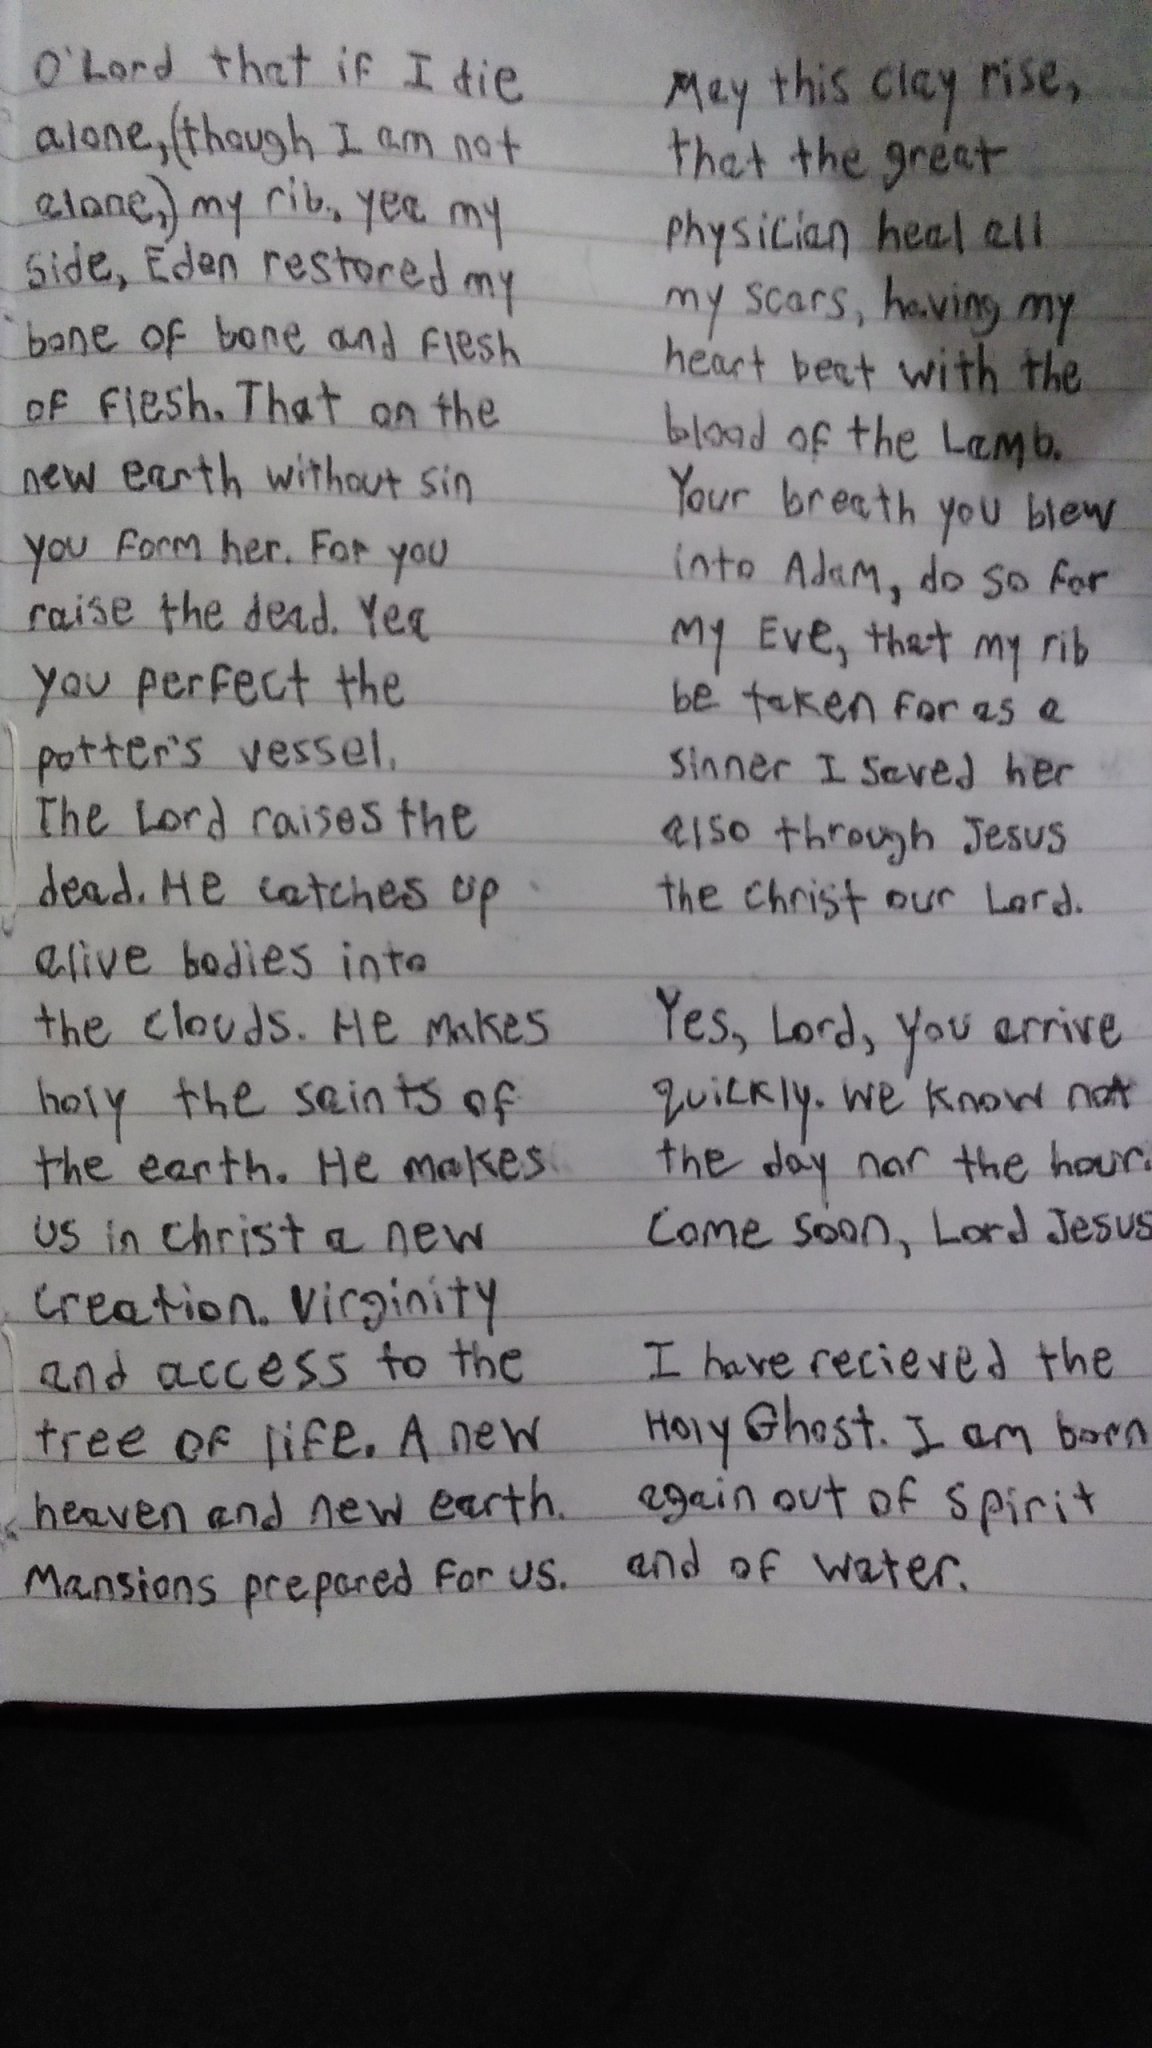 O'Lord that if I die
alone, (though I am not
alone,) my rib, yea my
side, Eden restored my
bone of bone and flesh
of flesh. That on the
new earth without sin
you form her. For you
raise the dead. Yea
you perfect the
potter's vessel.
The Lord raises the
dead. He catches up
alive bodies into
the clouds. He makes
holy the saints of
the earth. He makes
us in Christ a new
creation. Virginity
and access to the
tree of life. A new
heaven and new earth.
Mansions prepared for us.
May this clay rise,
that the great
physician heal all
my scars, having my
heart beat with the
blood of the Lamb.
Your breath you blew
into Adam, do so for
my Eve, that my rib
be taken for as a
sinner I saved her
also through Jesus
the Christ our Lord.
Yes, Lord, you arrive
quickly. We know not
the day nor the hour.
Come soon, Lord Jesus
I have recieved the
Holy Ghost. I am born
again out of spirit
and of water.